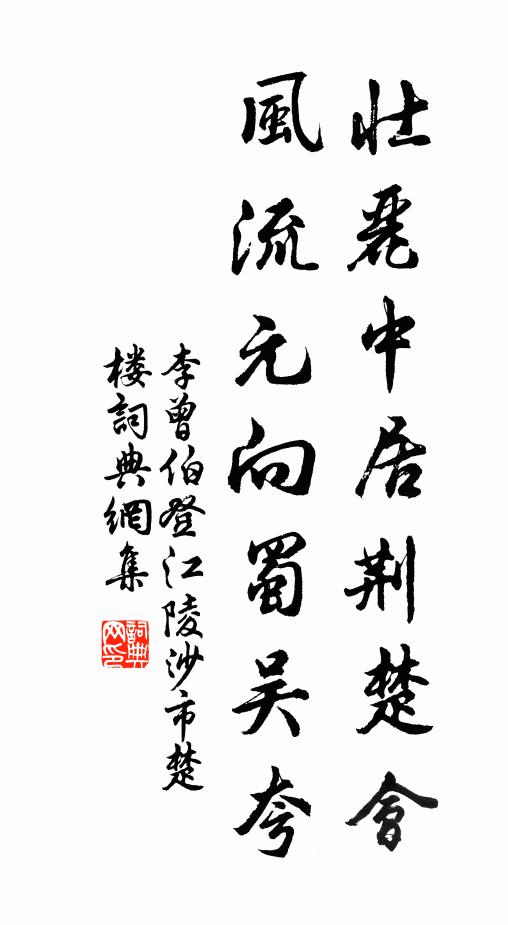 壮麗中居荆楚會
風流元向蜀吴夸
李曾伯登江陵沙市楚
楼詞典網集
詞典
网印